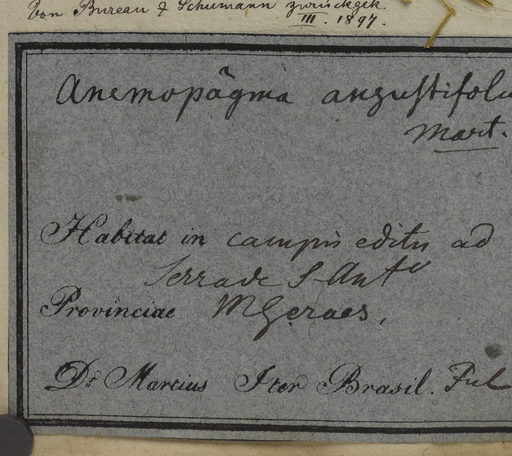 Von Bureau & Schumann zurückgek.
III. 1897.
Anemopägma angustifoliu
Mart.
Habitat in campis editis ad
Serra de S. Antº
Provinciae MGeraes.
Dr. Martius Iter Brasil. Jul